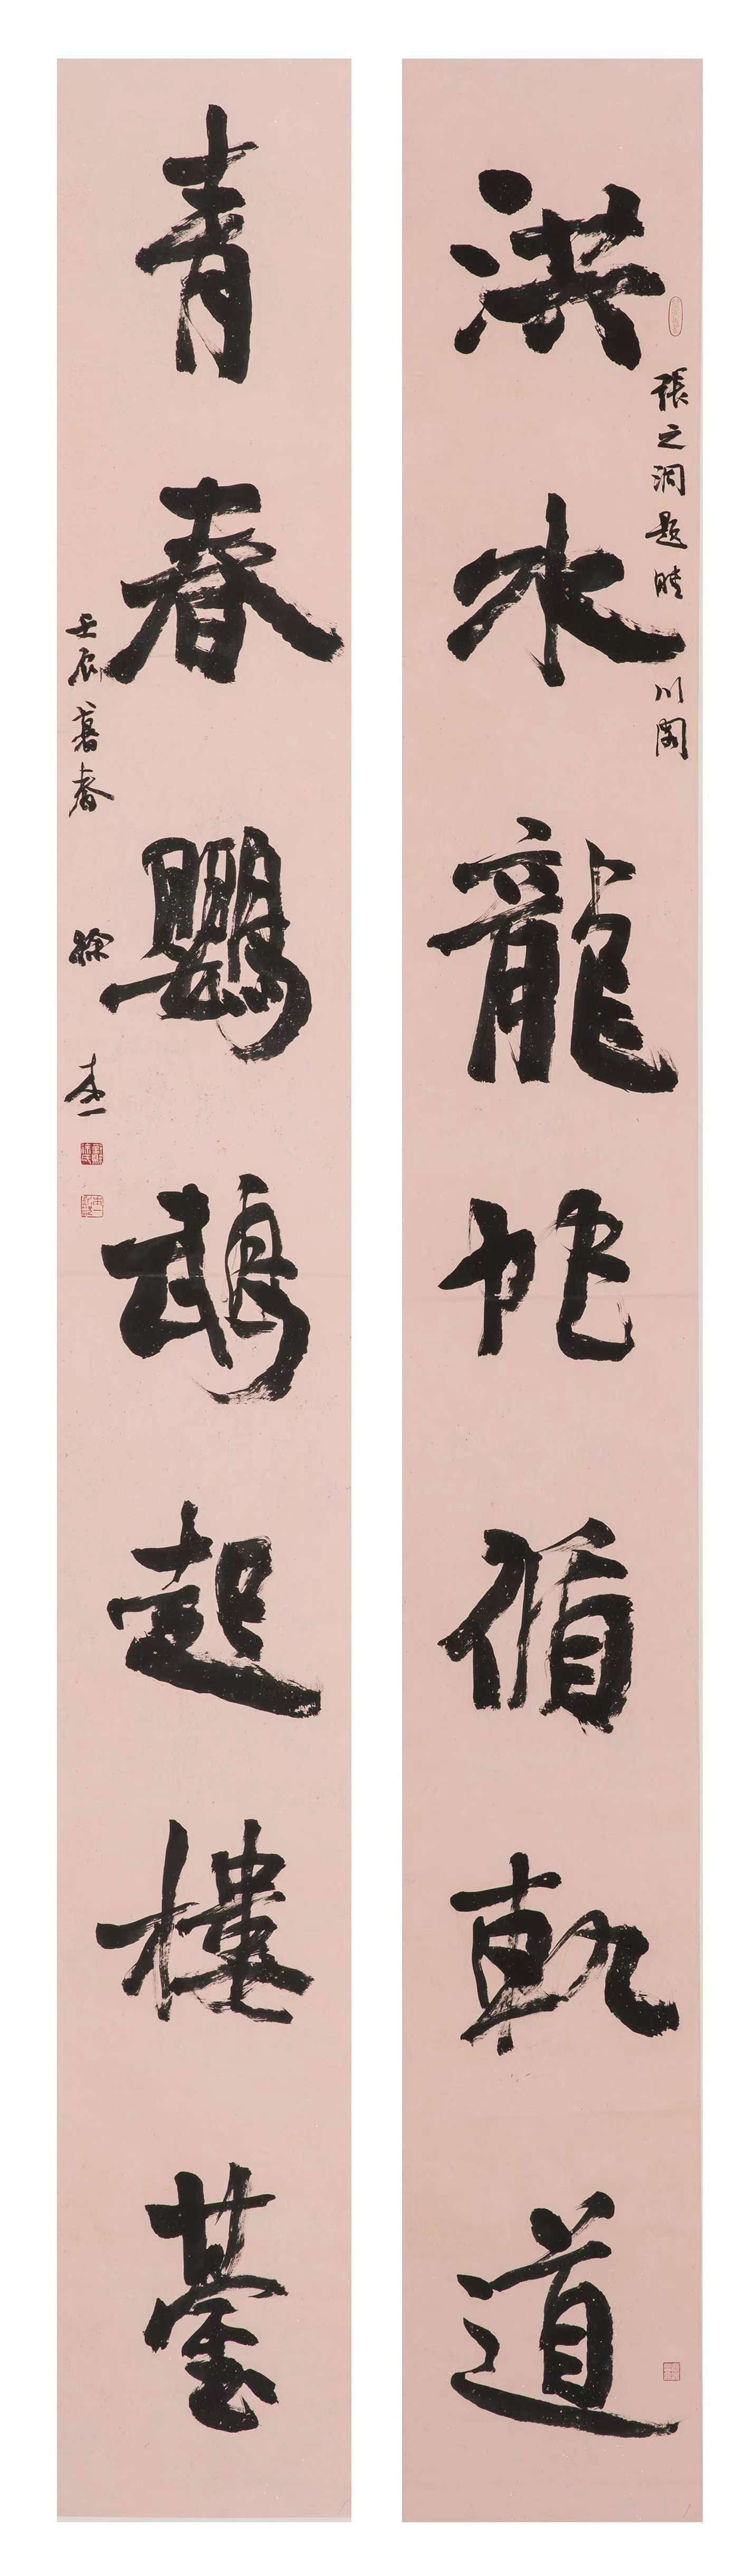 洪水龍蛇循軌道
張之洞題晴川閣
青春鸚鵡起樓臺
壬辰暮春 徐本一